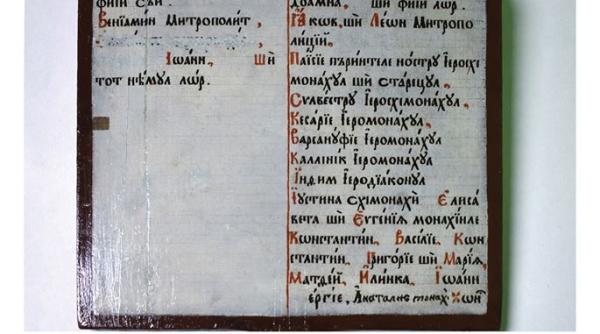 фїи сѣи.
Венїамин Митрополит,
Іѡанн, Ши
тот нѣмул лѡр.
дoамна, ши фїи лѡр.
Їакѡв, ши Леѡн Митропо
лиціи,
Паїсїе пъринтеле ностру Їеросхи
монахул ши старецул,
Сѵлвестру Їеросхїмонахул,
Кесарїе Їеромонахул,
Варсануфїе Їеромонахул
Каллїнїк Їеромонахул
Їѡдим Їеродїаконул
Їустина схїмонахи Елиса
вета ши Еѵгенїѧ монахїиле
Кѡнстантин, Василїе, Кѡн
стантин, Григорїе ши Марїѧ,
Матѳеи, Илинка, Їѡанн
ергїе, Анастасие монах